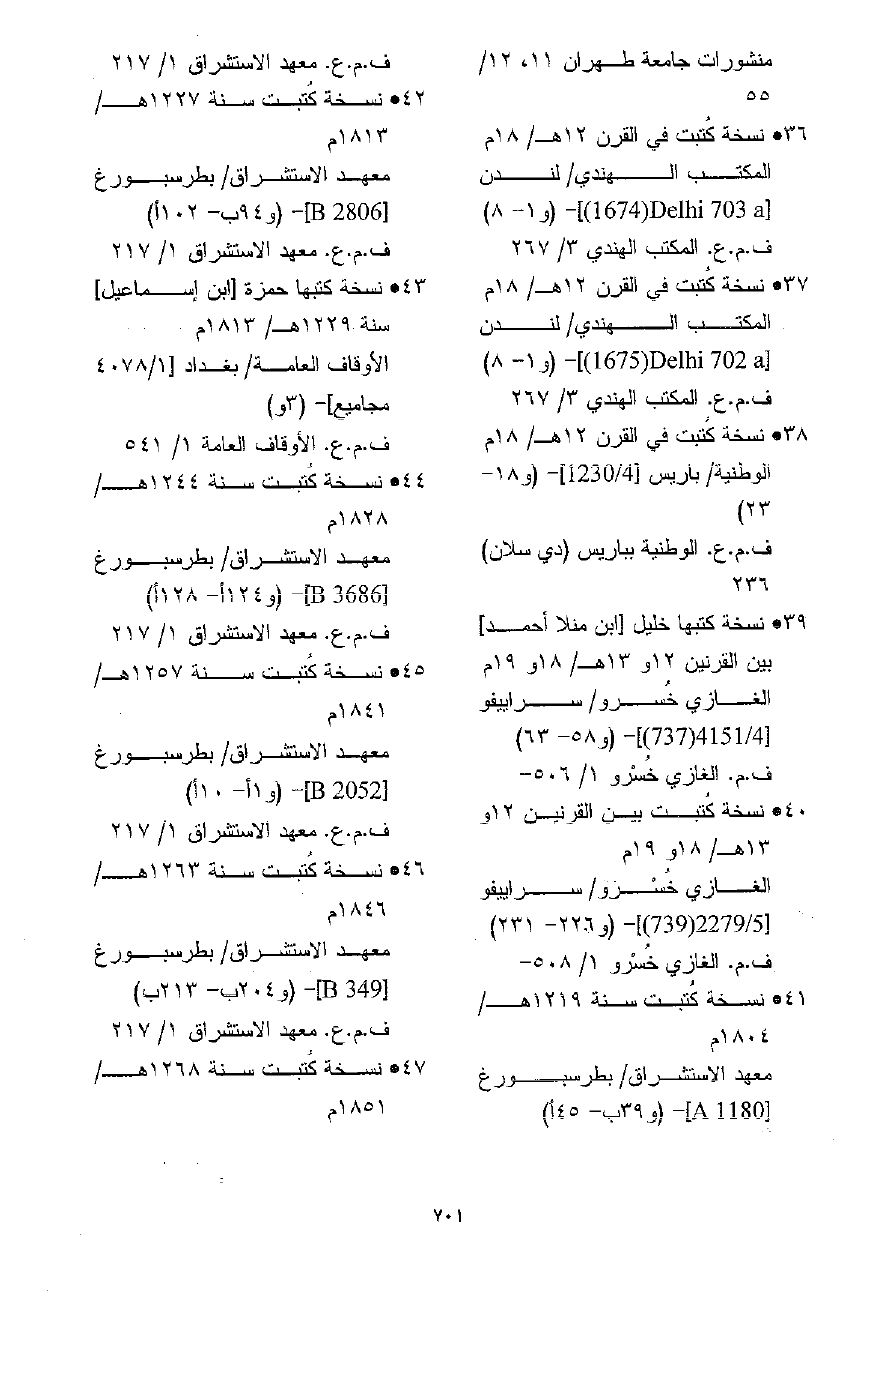 منشورات جامعة طهران ١١، ١٢/
٥٥
٣٦• نسخة كُتبت في القرن ١٢هـ/ ١٨م
المكتب الهندي/ لندن
[Delhi 703 a(1674)]- (و١- ٨)
ف.م.ع. المكتب الهندي ٣/ ٢٦٧
٣٧• نسخة كُتبت في القرن ١٢هـ/ ١٨م
المكتب الهندي/ لندن
[Delhi 702 a(1675)]- (و١- ٨)
ف.م.ع. المكتب الهندي ٣/ ٢٦٧
٣٨• نسخة كُتبت في القرن ١٢هـ/ ١٨م
الوطنية/ باريس [1230/4]- (و١٨-
٢٣)
ف.م.ع. الوطنية بباريس (دي سلان)
٢٣٦
٣٩• نسخة كتبها خليل [ابن منلا أحمد]
بين القرنين ١٢و ١٣هـ/ ١٨و ١٩م
الغازي خُسرو/ سراييفو
[4151/4(737)]- (و٥٨- ٦٣)
ف.م. الغازي خُسْرو ١/ ٥٠٦-
٤٠• نسخة كُتبت بين القرنين ١٢و
١٣هـ/ ١٨و ١٩م
الغازي خُسْرو/ سراييفو
[2279/5(739)]- (و٢٢٦- ٢٣١)
ف.م. الغازي خُسْرو ١/ ٥٠٨-
٤١• نسخة كُتبت سنة ١٢١٩هـ/
١٨٠٤م
معهد الاستشراق/ بطرسبورغ
[A 1180]- (و٣٩ب- ٤٥أ)
ف.م.ع. معهد الاستشراق ١/ ٢١٧
٤٢• نسخة كُتبت سنة ١٢٢٧هـ/
١٨١٣م
معهد الاستشراق/ بطرسبورغ
[B 2806]- (و٩٤ب- ١٠٢أ)
ف.م.ع. معهد الاستشراق ١/ ٢١٧
٤٣• نسخة كتبها حمزة [ابن إسماعيل]
سنة ١٢٢٩هـ/ ١٨١٣م
الأوقاف العامة/ بغداد [٤٠٧٨/١
مجاميع]- (٣و)
ف.م.ع. الأوقاف العامة ١/ ٥٤١
٤٤• نسخة كُتبت سنة ١٢٤٤هـ/
١٨٢٨م
معهد الاستشراق/ بطرسبورغ
[B 3686]- (و١٢٤أ- ١٢٨أ)
ف.م.ع. معهد الاستشراق ١/ ٢١٧
٤٥• نسخة كُتبت سنة ١٢٥٧هـ/
١٨٤١م
معهد الاستشراق/ بطرسبورغ
[B 2052]- (و١أ- ١٠أ)
ف.م.ع. معهد الاستشراق ١/ ٢١٧
٤٦• نسخة كُتبت سنة ١٢٦٣هـ/
١٨٤٦م
معهد الاستشراق/ بطرسبورغ
[B 349]- (و٢٠٤ب- ٢١٣ب)
ف.م.ع. معهد الاستشراق ١/ ٢١٧
٤٧• نسخة كُتبت سنة ١٢٦٨هـ/
١٨٥١م
٧٠١